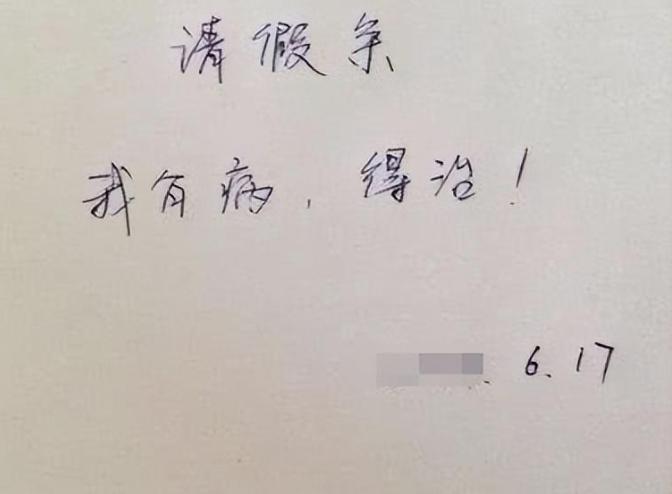 请假条
我有病，得治！
6.17